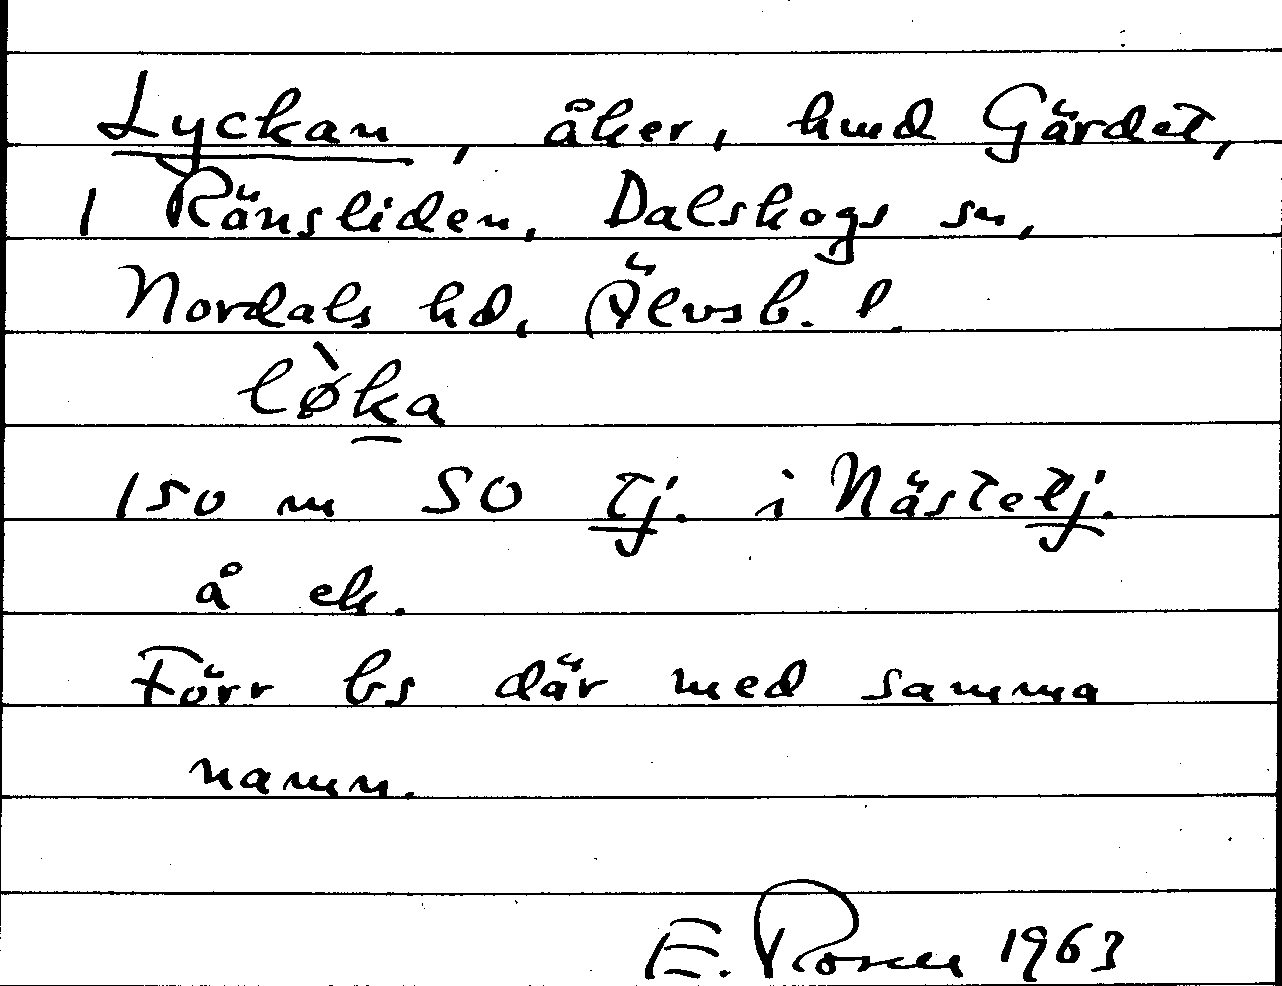 Lyckan, åker, hmd Gärdet,
1 Ränsliden, Dalskogs sn,
Nordals hd, Älvsb. l.
lø̀ka
150 m SO tj. i Nästetj.
å ek.
Förr bs där med samma
namn.
E. 1963